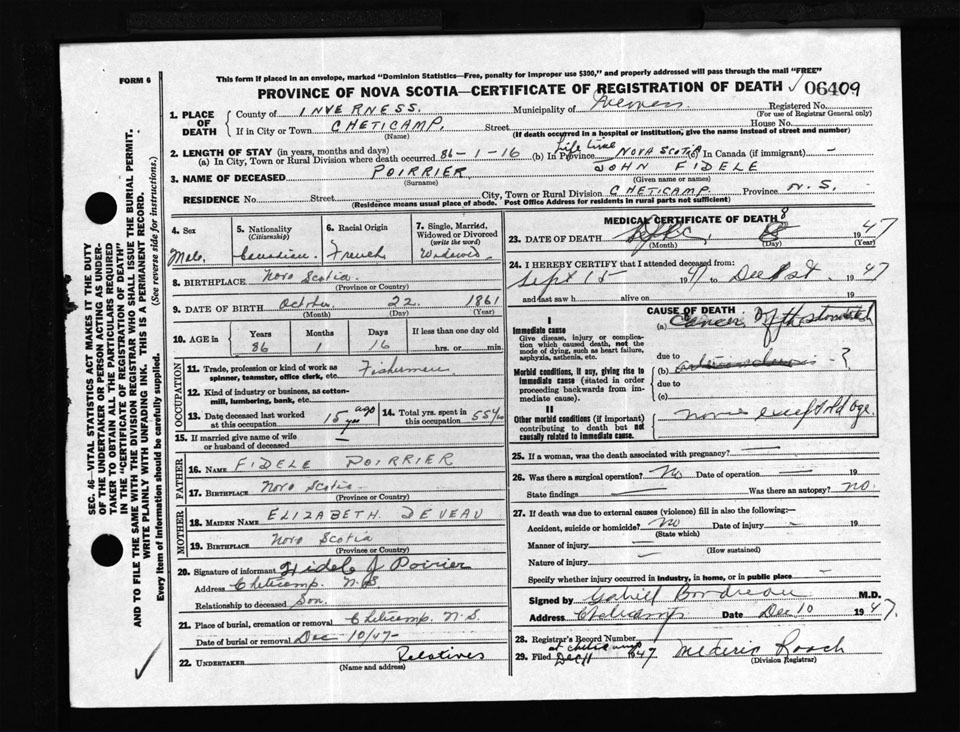 FORM 6
This form if placed in an envelope, marked "Dominion Statistics—Free, penalty for improper use $300," and properly addressed will pass through the mail "FREE"
PROVINCE OF NOVA SCOTIA—CERTIFICATE OF REGISTRATION OF DEATH 06409
1. PLACE OF DEATH County of INVERNESS. Municipality of Inverness Registered No.
(For use of Registrar General only)
If in City or Town CHETICAMP. Street House No.
(Name) (If death occurred in a hospital or institution, give the name instead of street and number)
2. LENGTH OF STAY (in years, months and days)
(a) In City, Town or Rural Division where death occurred 86-1-16 (b) In Province Life time NOVA SCOTIA (c) In Canada (if immigrant) —
3. NAME OF DECEASED POIRRIER JOHN FIDELE
(Surname) (Given name or names)
RESIDENCE No. Street City, Town or Rural Division CHETICAMP Province N.S.
(Residence means usual place of abode. Post Office Address for residents in rural parts not sufficient)
4. Sex 5. Nationality (Citizenship) 6. Racial Origin 7. Single, Married, Widowed or Divorced (write the word)
Male. Canadian. French Widowed
8. BIRTHPLACE Nova Scotia.
(Province or Country)
9. DATE OF BIRTH October 22. 1861
(Month) (Day) (Year)
10. AGE in Years Months Days If less than one day old
86 1 16 hrs. or min.
OCCUPATION
11. Trade, profession or kind of work as spinner, teamster, office clerk, etc. Fisherman
12. Kind of industry or business, as cotton-mill, lumbering, bank, etc.
13. Date deceased last worked at this occupation 15 yrs ago 14. Total yrs. spent in this occupation 55 yrs
15. If married give name of wife or husband of deceased
FATHER
16. NAME FIDELE POIRRIER
17. BIRTHPLACE Nova Scotia
(Province or Country)
MOTHER
18. MAIDEN NAME ELIZABETH DEVEAU
19. BIRTHPLACE Nova Scotia
(Province or Country)
20. Signature of informant Fidele J Poirier
Address Cheticamp N.S
Relationship to deceased Son.
21. Place of burial, cremation or removal Cheticamp N.S.
Date of burial or removal Dec 10/47
22. UNDERTAKER Relatives
(Name and address)
MEDICAL CERTIFICATE OF DEATH
23. DATE OF DEATH Dec. 8 1947
(Month) (Day) (Year)
24. I HEREBY CERTIFY that I attended deceased from:
Sept 15 1941 to Dec 1st. 1947
and last saw h alive on 19
CAUSE OF DEATH
I
Immediate cause
Give disease, injury or complication which caused death, not the mode of dying, such as heart failure, asphyxia, asthenia, etc.
(a) Cancer of the stomach
due to
Morbid conditions, if any, giving rise to immediate cause (stated in order proceeding backwards from immediate cause).
(b) - ?
due to
(c)
II
Other morbid conditions (if important) contributing to death but not causally related to immediate cause.
None except old age.
25. If a woman, was the death associated with pregnancy?
26. Was there a surgical operation? No Date of operation — 19
State findings — Was there an autopsy? NO.
27. If death was due to external causes (violence) fill in also the following:—
Accident, suicide or homicide? No Date of injury — 19
(State which)
Manner of injury —
(How sustained)
Nature of injury
Specify whether injury occurred in industry, in home, or in public place —
Signed by Gabriel Boudreau M.D.
Address Cheticamp Date Dec 10 1947.
28. Registrar's Record Number
at Cheticamp
29. Filed Dec 11 1947 Mederic Roach
(Division Registrar)
SEC. 46—VITAL STATISTICS ACT MAKES IT THE DUTY
OF THE UNDERTAKER OR PERSON ACTING AS UNDERTAKER TO OBTAIN ALL THE PARTICULARS REQUIRED
IN THE "CERTIFICATE OF REGISTRATION OF DEATH"
AND TO FILE THE SAME WITH THE DIVISION REGISTRAR WHO SHALL ISSUE THE BURIAL PERMIT.
WRITE PLAINLY WITH UNFADING INK. THIS IS A PERMANENT RECORD.
Every Item of Information should be carefully supplied. (See reverse side for instructions.)